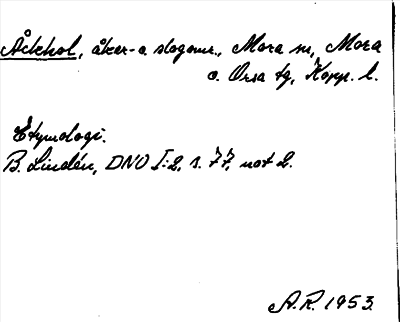 Åckhol, åker- o. slogomr., Mora sn, Mora
o. Orsa tg, Kopp. l.
Etymologi.
B. Lindén, DNO I:2, s. 77, not 2.
A.R. 1953.